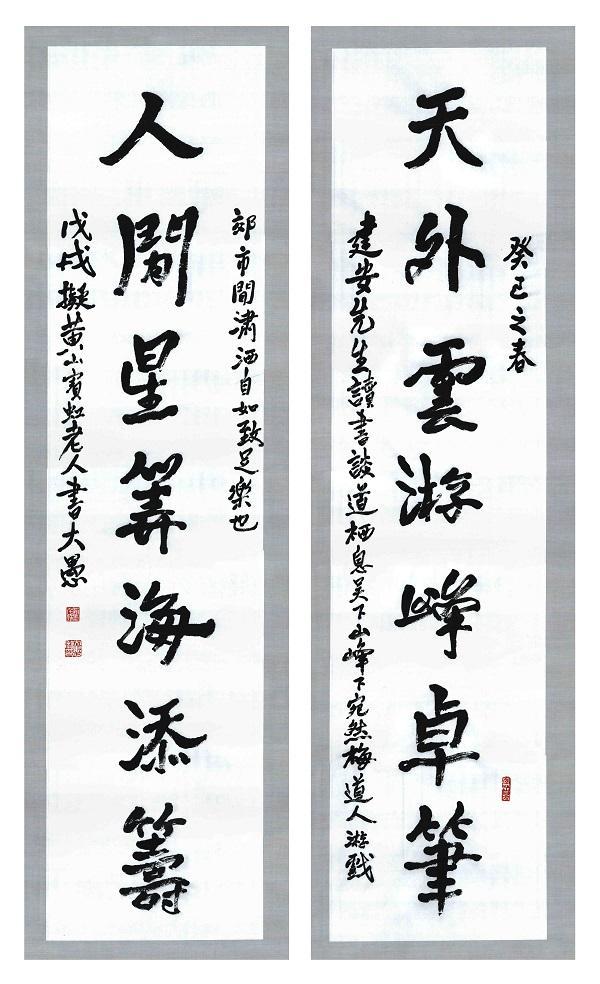 癸巳之春
天外雲游峰卓筆
建安先生讀書談道栖息吴下山峰下宛然梅道人游戲
郊市間潇洒自如致足樂也
人間星筭海添籌
戊戌擬黄山賓虹老人書大愚